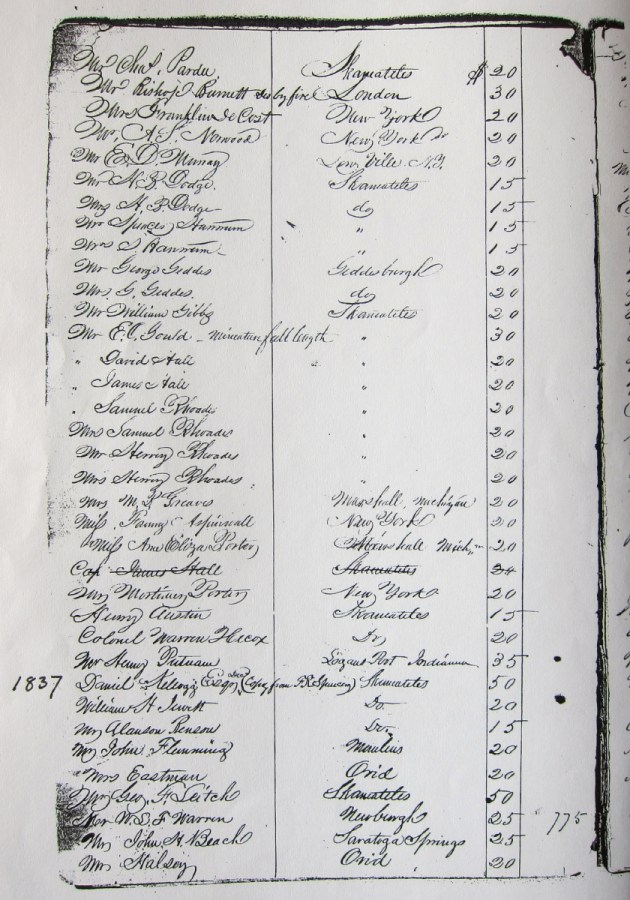 Mr Chas. Pardee Skaneateles $ 20
Mr Bishop Burnett des by fire London 30
Mrs Franklin De Cost New York 20
Mr. A. S. Norwood New York do 20
Mr E. D. Murray Low Ville N.Y. 20
Mr N. B. Dodge Skaneateles 15
Mrs H. B. Dodge do 15
Mr Spencer Hannum " 15
Mrs S Hannum " 15
Mr George Geddes Geddesburgh 20
Mrs G. Geddes. do 20
Mr William Gibbs Skaneateles 20
Mr E. C. Gould - miniature full length " 30
" David Hall " 20
" James Hall " 20
" Samuel Rhoades " 20
Mrs Samuel Rhoades " 20
Mr Hervey Rhoades " 20
Mrs Hervey Rhoades " 20
Mrs M. P. Greaves Marshall, Michigan 20
Miss. Fanny Aspinwall New York 20
Miss Ann Eliza Porter Marshall Mich " 20
Cap James Hall Skaneateles
Mrs Mortimer Porter New York 20
Henry Austin Skaneateles 15
Colonel Warren Hecox Do, 20
Mr Henry Putnam Logans Port Indianna 35
1837 Daniel Kellogg Esqr Copy from Skaneateles 50
William H Jewett Do 20
Mr Alanson Benson Do. 15
Mr John Flemming Manlius 20
Mrs Eastman Ovid 20
Mr Geo. F. Leitch Skaneateles 50
Mr W. S. F. Warren Newburgh 25 775
Mr John H. Beach Saratoga Springs 25
Mrs Halsey Ovid 20